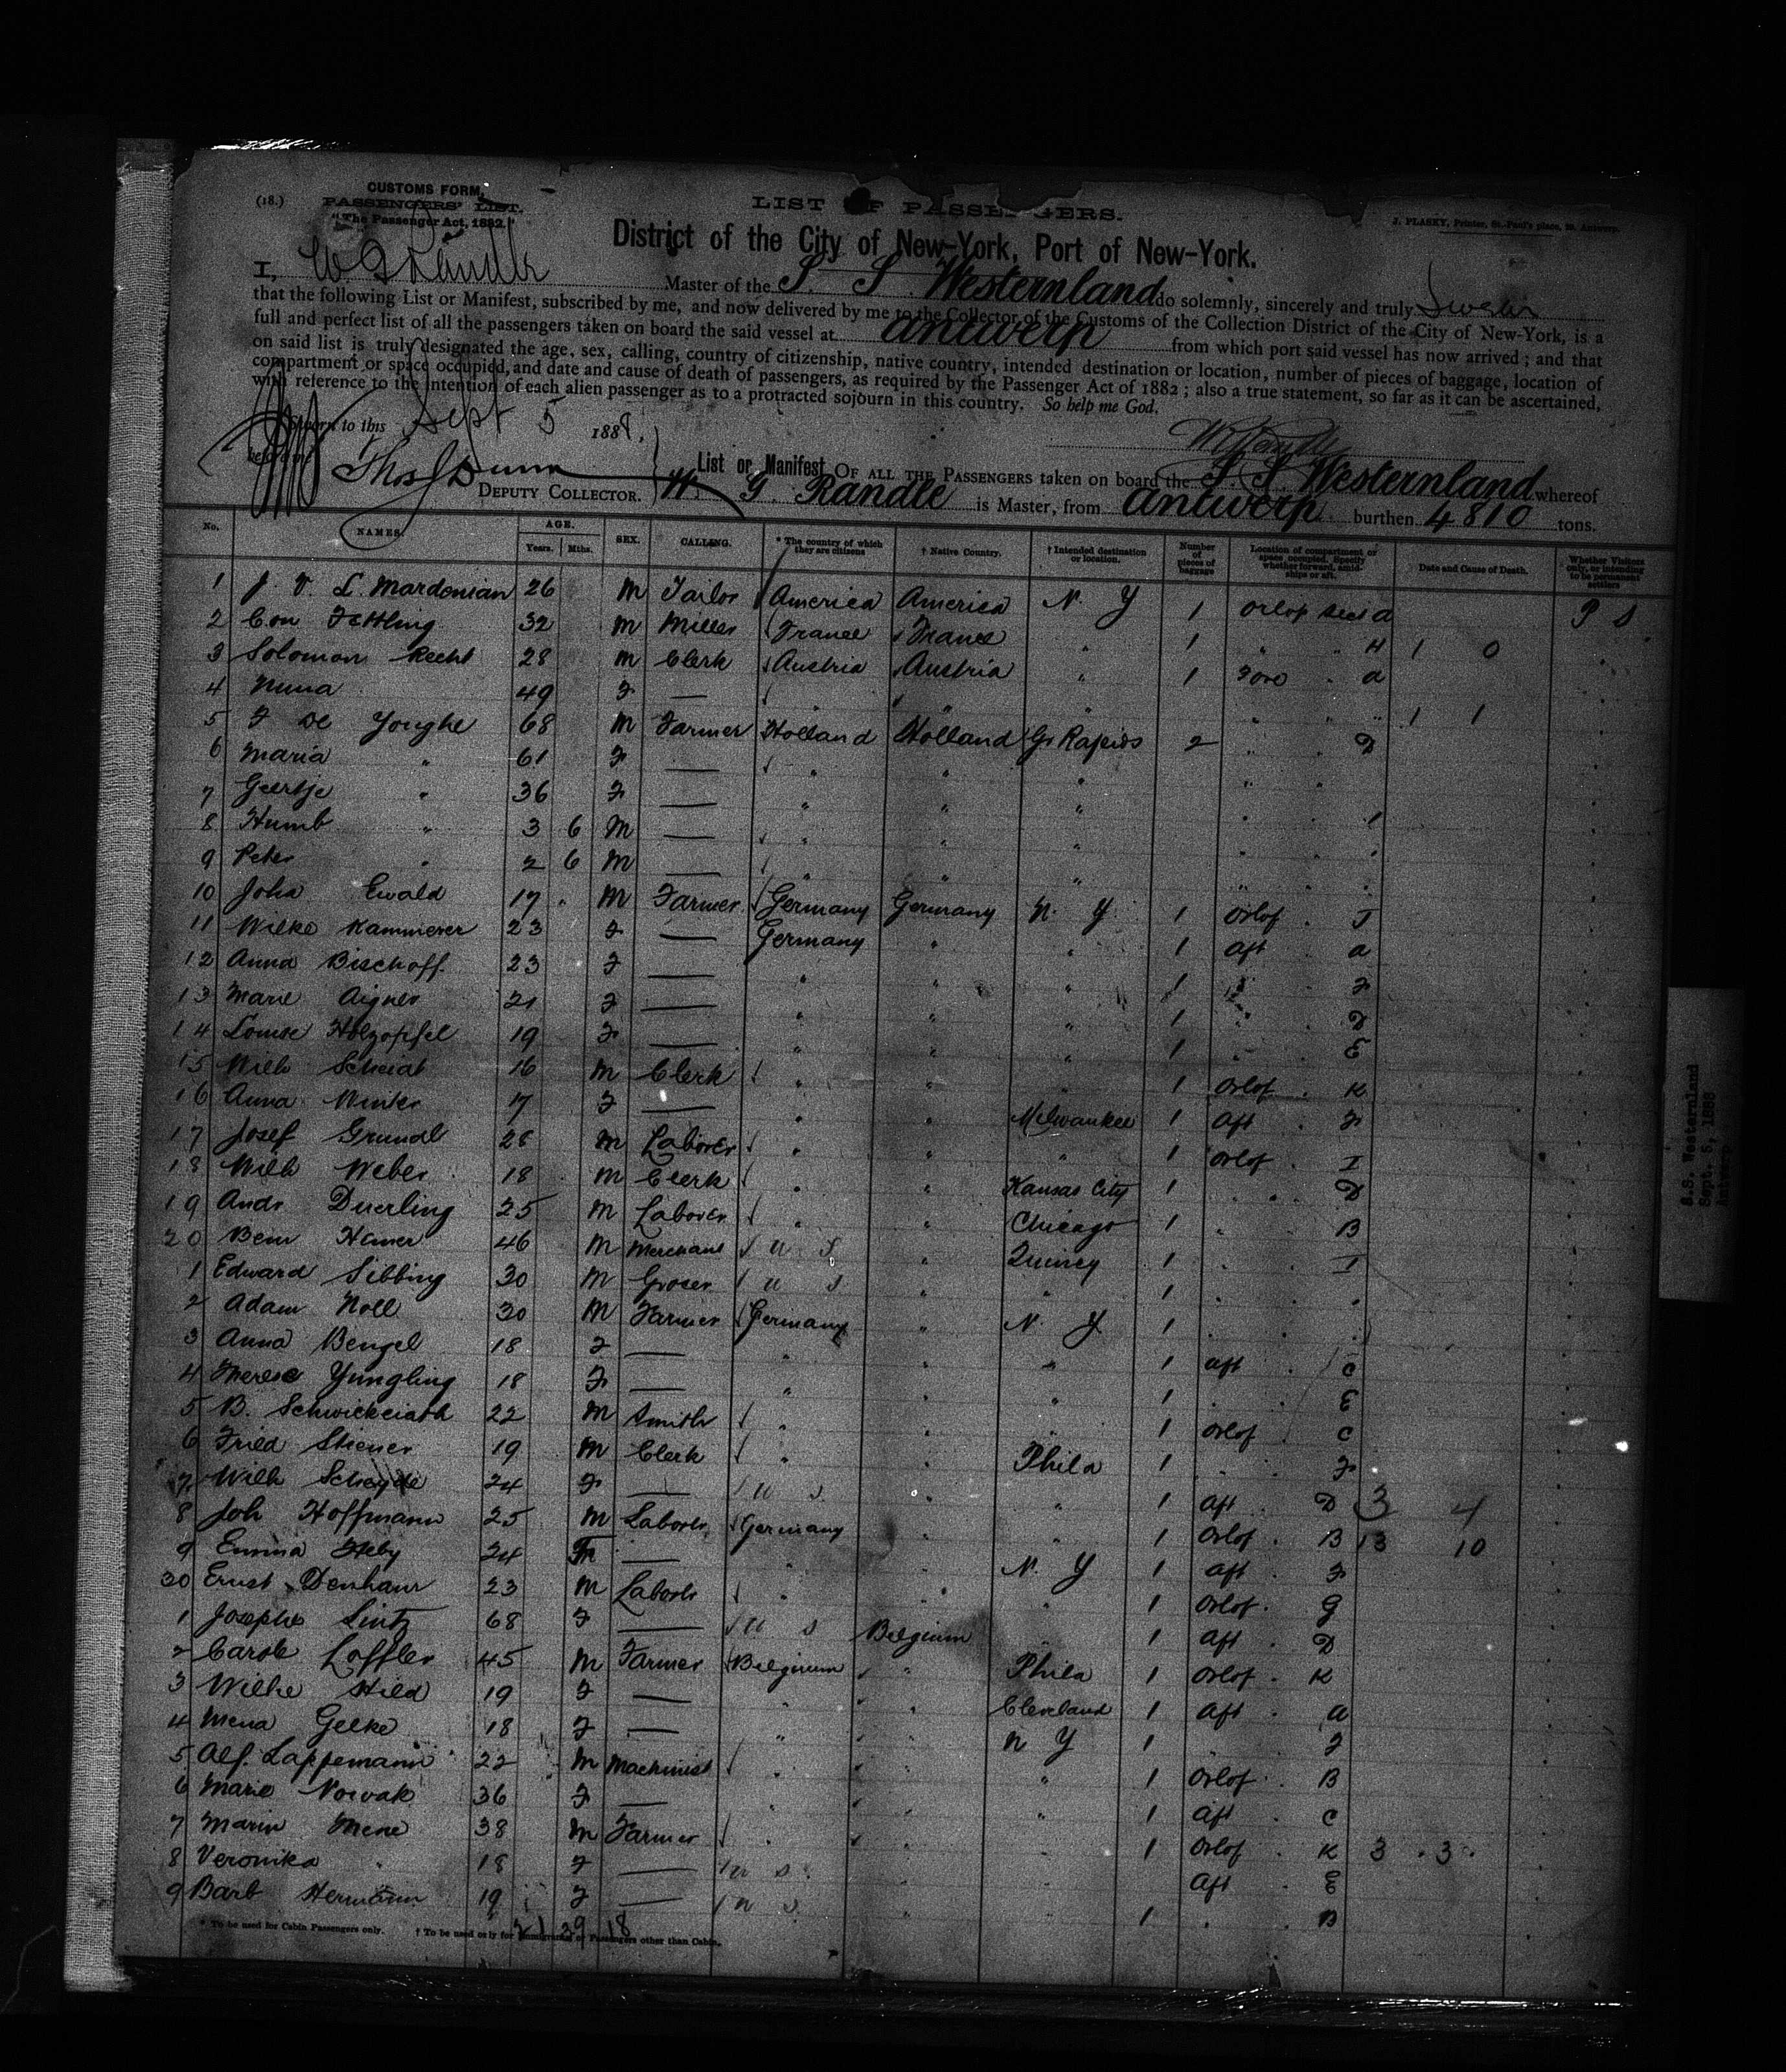 (18.)
CUSTOMS FORM.
PASSENGERS' LIST.
"The Passenger Act, 1882."
LIST OF PASSENGERS.
J. PLASKY, Printer, St.-Paul's place, Antwerp.
District of the City of New-York, Port of New-York.
I, W G Randle Master of the S. S. Westernland do solemnly, sincerely and truly Swear
that the following List or Manifest, subscribed by me, and now delivered by me to the Collector of the Customs of the Collection District of the City of New-York, is a
full and perfect list of all the passengers taken on board the said vessel at Antwerp from which port said vessel has now arrived; and that
on said list is truly designated the age, sex, calling, country of citizenship, native country, intended destination or location, number of pieces of baggage, location of
compartment or space occupied, and date and cause of death of passengers, as required by the Passenger Act of 1882; also a true statement, so far as it can be ascertained,
with reference to the intention of each alien passenger as to a protracted sojourn in this country. So help me God.
Sworn to this Sept 5 1888.
before me
Thos J Dunn
DEPUTY COLLECTOR.
W G Randle
List or Manifest OF ALL THE PASSENGERS taken on board the S. S. Westernland whereof
W. G. Randle is Master, from Antwerp burthen 4810 tons.
No. NAMES. AGE. Years. Mths. SEX. CALLING. * The country of which they are citizens † Native Country. † Intended destination or location. Number of pieces of baggage Location of compartment or space occupied. Specify whether forward, amidships or aft. Date and Cause of Death. Whether Visitors only, or intending to be permanent settlers
1 J. V. L. Mardonian 26 M Tailor America America N. Y 1 Orlop Sect a P S
2 Con Fettling 32 M Miller France France " 1 " " H 1 0
3 Solomon Recht 28 M Clerk Austria Austria " 1 Forw " a
4 Nuna 49 F — " " " " " " 1 1
5 F De Jonghe 68 M Farmer Holland Holland Gr Rapids 2 " " D
6 Maria " 61 F — " " " " "
7 Geertje " 36 F — " " "
8 Humb " 3 6 M — " " "
9 Peter " 2 6 M — " " "
10 John Ewald 17 M Farmer Germany Germany N. Y. 1 Orlof J
11 Wilke Kammerer 23 F — Germany " " 1 Aft a
12 Anna Bischoff 23 F — " " " 1 " F
13 Marie Aigner 21 F — " " " 1 " D
14 Louise Holzopfel 19 F — " " " 1 " E
15 Wilh Scheidt 16 M Clerk " " " 1 Orlof K
16 Anna Winkr 17 F — " " Milwaukee 1 Aft F
17 Josef Grundl 28 M Laborer " " " 1 Orlof I
18 Wilh Weber 18 M Clerk " " Kansas City 1 " " D
19 Andr Duerling 25 M Laborer " " Chicago 1 " B
20 Bern Hamer 46 M Merchant U S " Quincy 1 " I
1 Edward Sibbing 30 M Grocer U S " " 1 " "
2 Adam Noll 30 M Farmer Germany " N. Y. 1 " "
3 Anna Bengel 18 F — " " " 1 Aft C
4 Therese Yungling 18 F — " " " 1 " E
5 B. Schwickerath 22 M Smith " " " 1 Orlof C
6 Fried Stiener 19 M Clerk " " Phila 1 " F
7 Wilh Scheyde 24 F — U S " " 1 Aft D 3 4
8 Joh Hoffmann 25 M Laborer Germany " " 1 Orlof B 13 10
9 Emma 24 F — " " N. Y 1 Aft F
30 Ernst Denhaur 23 M Laborer " " " 1 Orlof G
1 Josephe Lintz 68 F — U S Belgium " 1 Aft D
2 Carole Loffler 45 M Farmer Belgium " Phila 1 Orlof K
3 Wilhe Hild 19 F — " " Cleveland 1 Aft a
4 Mena Gelke 18 F — " " N Y 1 " F
5 Alf. Lappemann 22 M Machinist " " " 1 Orlof B
6 Marie Novak 36 F — " " " 1 Aft C
7 Marin Mene 38 M Farmer " " " 1 Orlof K 3 3
8 Veronika " 18 F — U S " " Aft E
9 Barb Hermann 19 F — U S " " 1 " B
* To be used for Cabin Passengers only. † To be used only for Immigrants or Passengers other than Cabin.
21 39 18
S.S. Westernland
Sept. 5, 1888
Antwerp